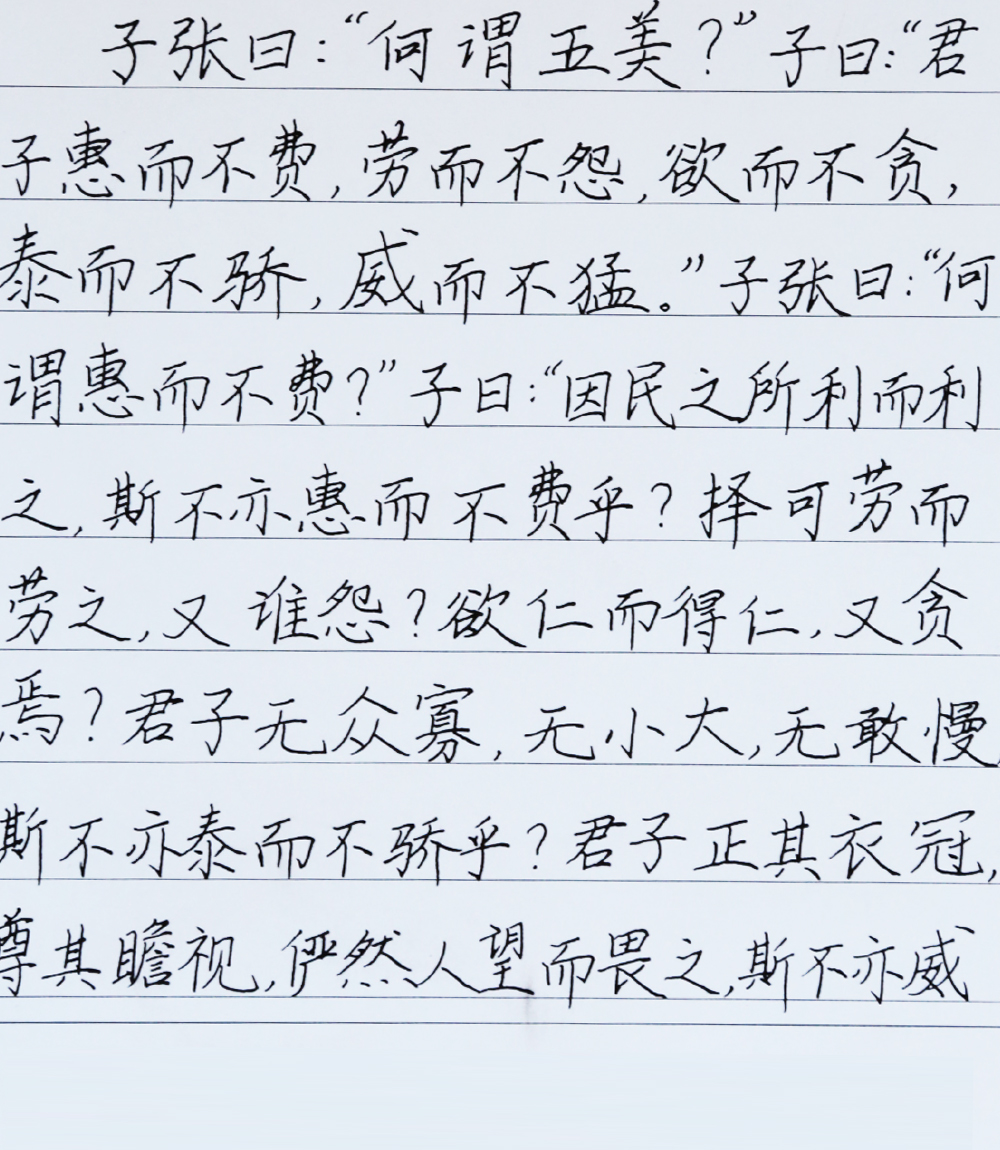 子张曰：“何谓五美？”子曰：“君
子惠而不费，劳而不怨，欲而不贪，
泰而不骄，威而不猛。”子张曰：“何
谓惠而不费？”子曰：“因民之所利而利
之，斯不亦惠而不费乎？择可劳而
劳之，又谁怨？欲仁而得仁，又贪
焉？君子无众寡，无小大，无敢慢，
斯不亦泰而不骄乎？君子正其衣冠，
尊其瞻视，俨然人望而畏之，斯不亦威